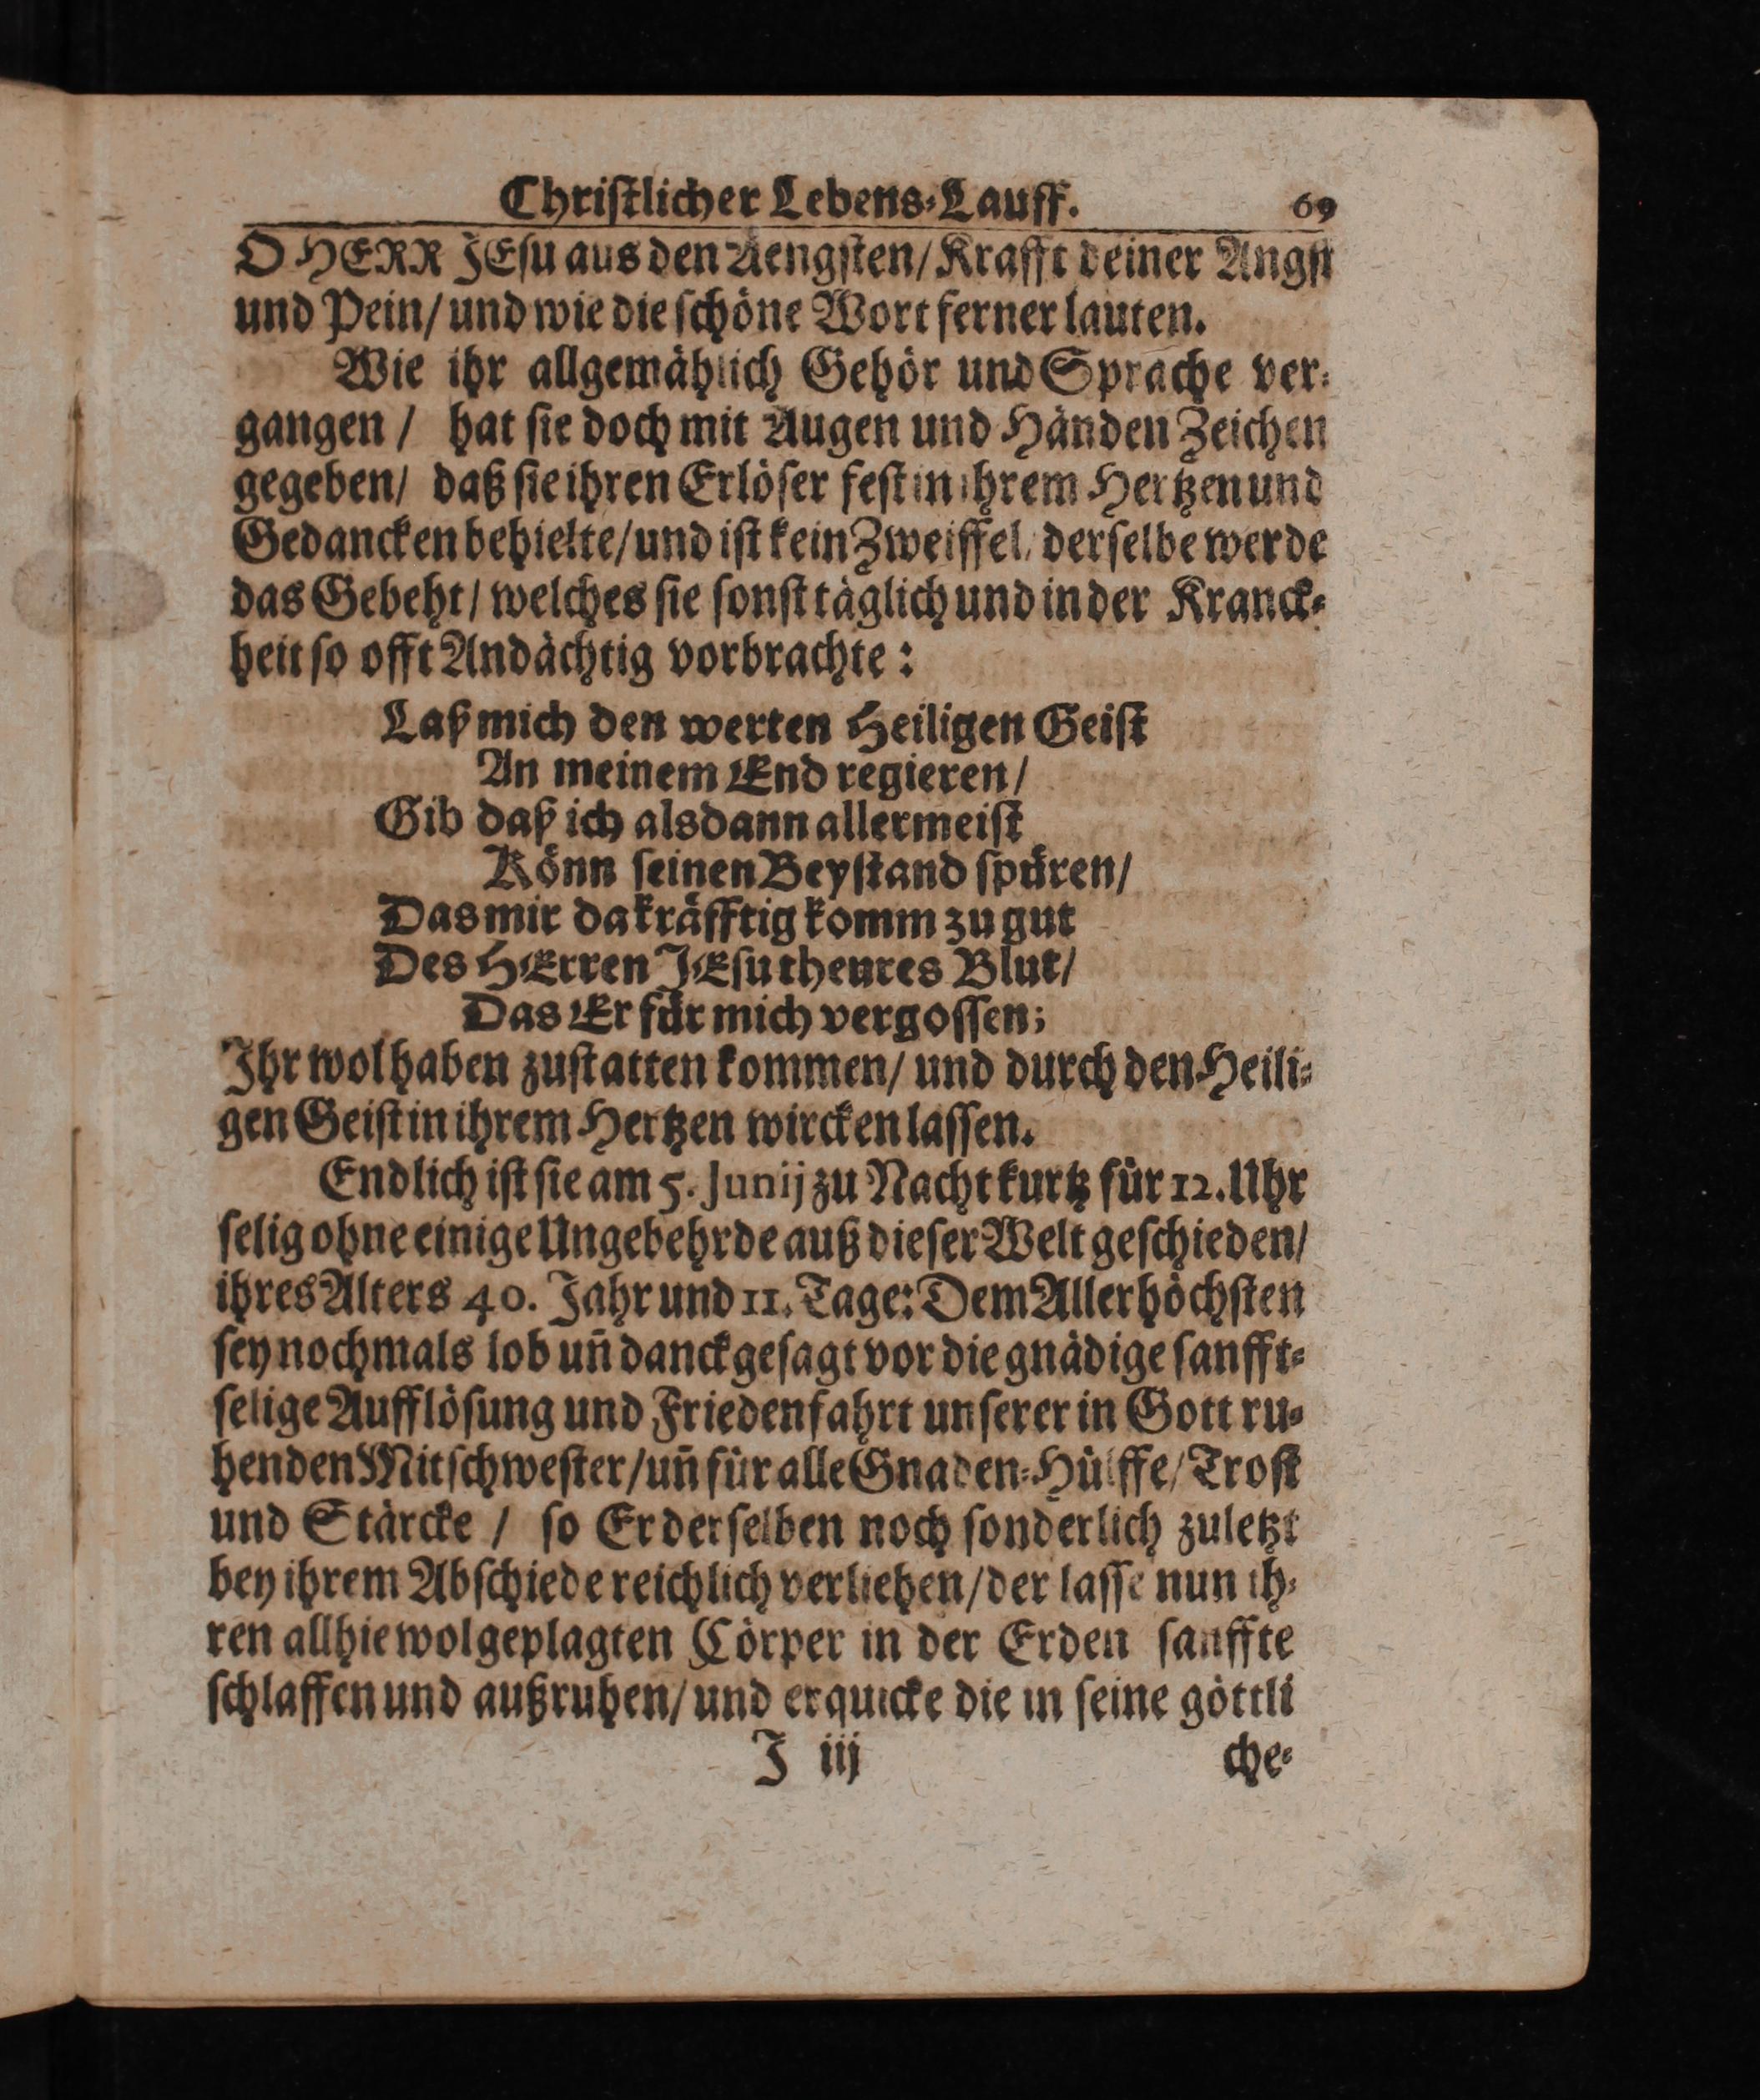 Chriſtlicher Lebens-Lauff. 69
O HERR JEſu aus den Aengſten/ Krafft deiner Angſt
und Pein/ und wie die ſchöne Wort ferner lauten.
Wie ihr allgemählich Gehör und Sprache ver-
gangen / hat ſie doch mit Augen und Händen Zeichen
gegeben/ daß ſie ihren Erlöſer feſt in ihrem Hertzen und
Gedancken behielte/ und iſt kein Zweiffel/ derſelbe werde
das Gebeht/ welches ſie ſonſt täglich und in der Kranck-
heit ſo offt Andächtig vorbrachte:
Laß mich den werten Heiligen Geiſt
An meinem End regieren/
Gib daß ich alsdann allermeiſt
Könn ſeinen Beyſtand ſpüren/
Das mir da kräfftig komm zu gut
Des HErren JEſu theures Blut/
Das Er für mich vergoſſen;
Ihr wol haben zuſtatten kommen/ und durch den Heili-
gen Geiſt in ihrem Hertzen wircken laſſen.
Endlich iſt ſie am 5. Junij zu Nacht kurtz für 12. Uhr
ſelig ohne einige Ungebehrde auß dieſer Welt geſchieden/
ihres Alters 40. Jahr und 11. Tage: Dem Allerhöchſten
ſey nochmals lob uñ danck geſagt vor die gnädige ſanfft-
ſelige Aufflöſung und Friedenfahrt unſerer in Gott ru-
henden Mitſchweſter/ uñ für alle Gnaden-Hülffe/ Troſt
und Stärcke / ſo Er derſelben noch ſonderlich zuletzt
bey ihrem Abſchiede reichlich verliehen/ der laſſe nun ih-
ren allhie wolgeplagten Cörper in der Erden ſanffte
ſchlaffen und außruhen/ und erquicke die in ſeine göttli
J iij che-